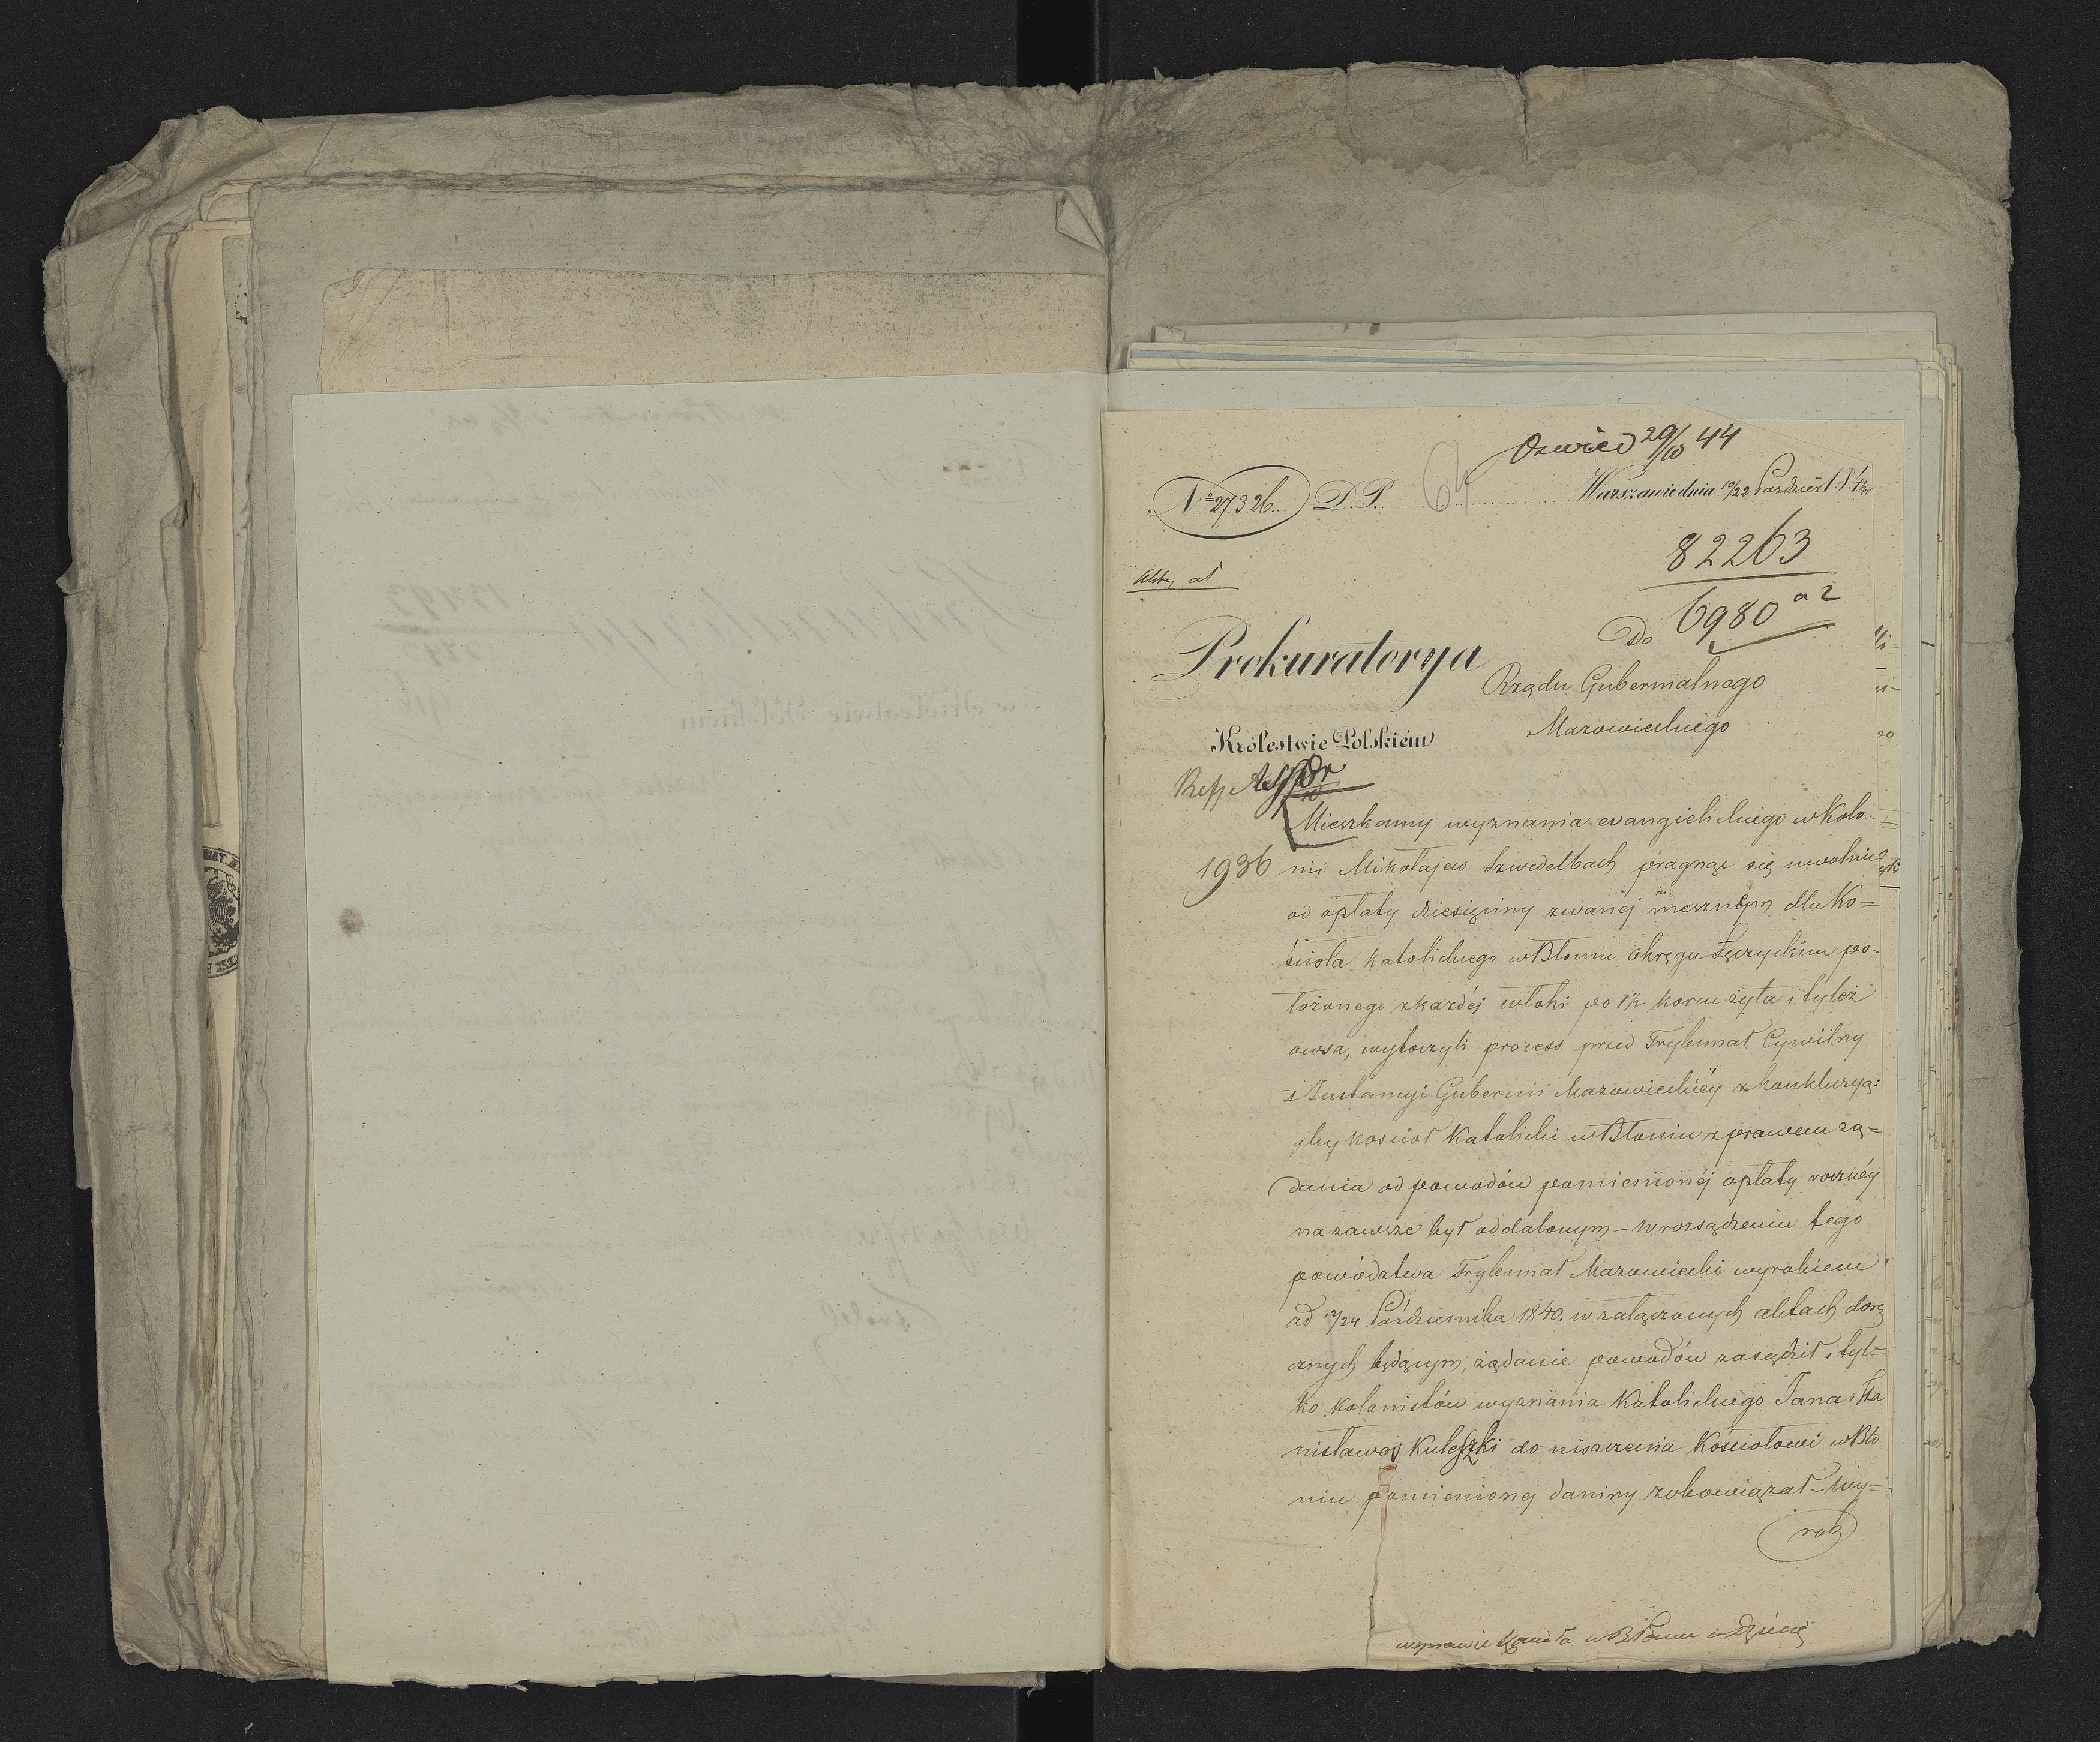 29/10 44
№ 27326. D. P. 64 Warszawie dnia 10/22 Paździer 184
82263
6980 a 2
Do
Prokuratorya
Rządu Gubernialnego
Mazowieckiego
Królestwie Polskiém
Mieszkańcy wyznania evangielickiego w Kolo-
1936 nii Mikołajew Szwedelbach pragnąc się uwolnić
od opłaty dziesięciny zwanéj meszném dla Ko=
ścioła katolickiego w Błoniu Okręgu Łęczyckim po-
łożonego z każdéj włoki po 1½ korcu żyta i tyleż
owsa, wytoczyli process przed Trybunał Cywilny
I Instancyi Gubernii Mazowieckiéy z konkluzyą:
aby kościoł Katolicki w Błoniu z prawem żą=
dania od powodów pomienionéj opłaty rocznéy
na zawsze był oddalonym – W rozsądzeniu tego
powództwa Trybunał Mazowiecki wyrokiem
zd 12/24 Października 1840. w załączonych aktach dorę
cznych będącym, żądanie powodów zasądził i tyl-
ko kolonistów wyznania Katolickiego Jana i Sta
nisława Kuleszki do niszczenia Kościołowi w Bło
niu pomienionej daniny zobowiązał – Wy=
rok
w sprawie Kościoła w Błoniu